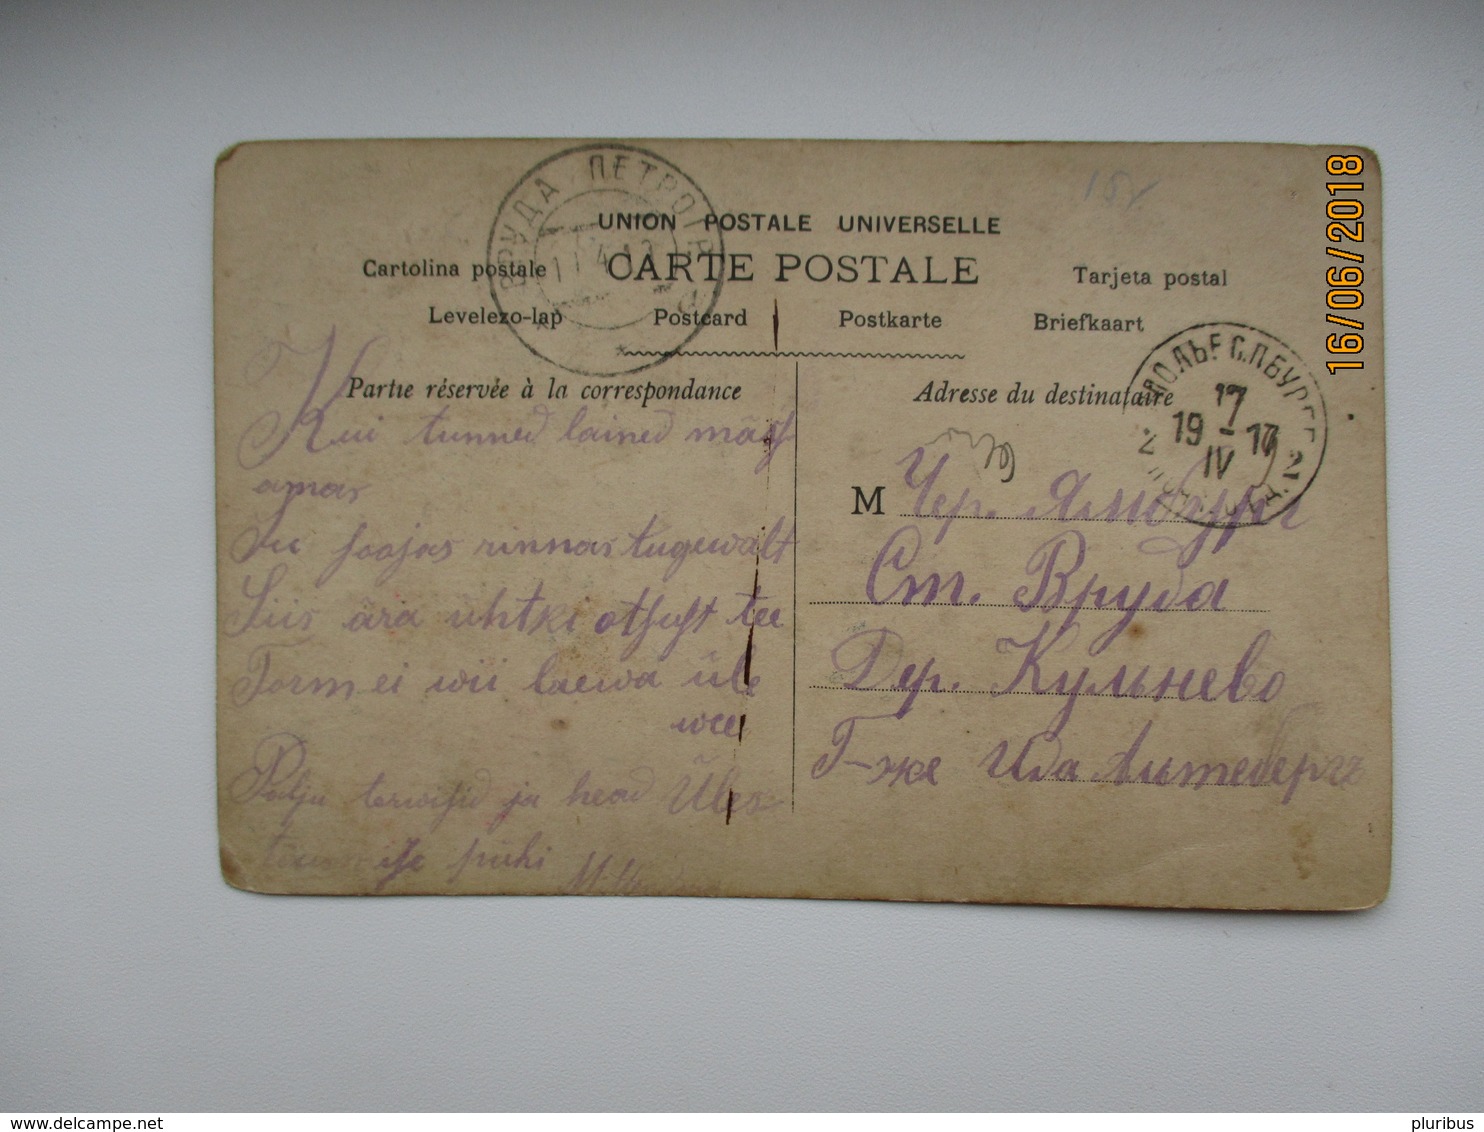 ВРУДА ПЕТРОГР
UNION POSTALE UNIVERSELLE
Cartolina postale CARTE POSTALE Tarjeta postal
Levelezo-lap Postcard Postkarte Briefkaart
Partie réservée à la correspondance
Adresse du destinataire
17
19 - 17
IV
2
Kui tunned lained mässamas
Ju soojas rinnas tugewast
Siis ära ühtki otsust tee
Torm ei wii laewa üle
wee
Palju terwisid ja head Üles
tõusmise pühi
M Чер. Ямбург
Ст. Вруда
Дер. Кульнево
Г-же Ида
16/06/2018
pluribus